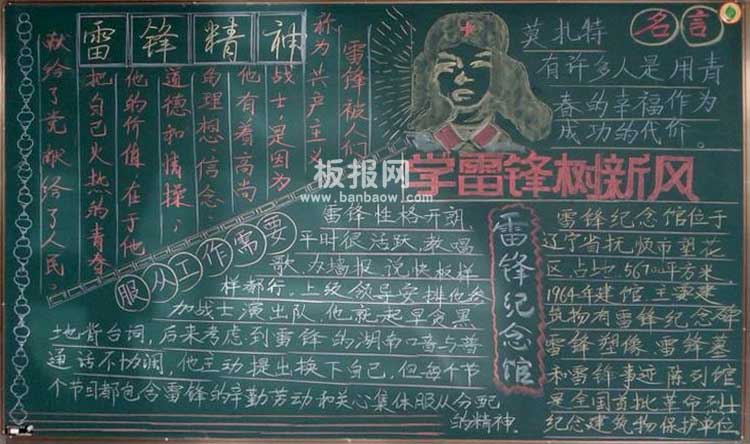 雷锋精神
雷锋被人们
称为共产主义
战士,是因为
他有着高尚
的理想、信念、
道德和情操;
他的价值,在于他
把自己火热的青春
献给了党,献给了人民,
名言
莫扎特
有许多人是用青
春的幸福作为
成功的代价。
学雷锋树新风
板报网
www.banbaow.com
服从工作需要
雷锋性格开朗,
平时很活跃,教唱
歌、办墙报、说快板样
样都行。上级领导安排他参
加战士演出队,他就起早贪黑
地背台词,后来考虑到雷锋的湖南口音与普
通话不协调,他主动提出换下自己,但每个节
个节目都包含雷锋的辛勤劳动和关心集体服从分配
的精神.
雷锋纪念馆
雷锋纪念馆位于
辽宁省抚顺市望花
区,占地
平方米.
1964年建馆,主要建
筑物有雷锋纪念碑
雷锋塑像、雷锋墓
和雷锋事迹陈列馆,
是全国首批革命烈士
纪念建筑物保护单位.